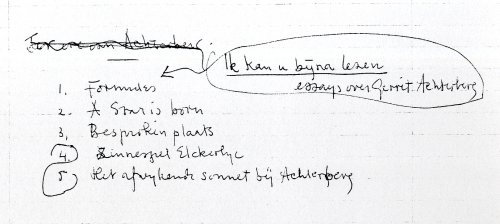 Ik kan u bijna lezen
essays over Gerrit Achterberg
1. Formules
2. A Star is born
3. Besproken plaats
4. Zinnespel Elckerlyc
5. Het afwijkende sonnet bij Achterberg